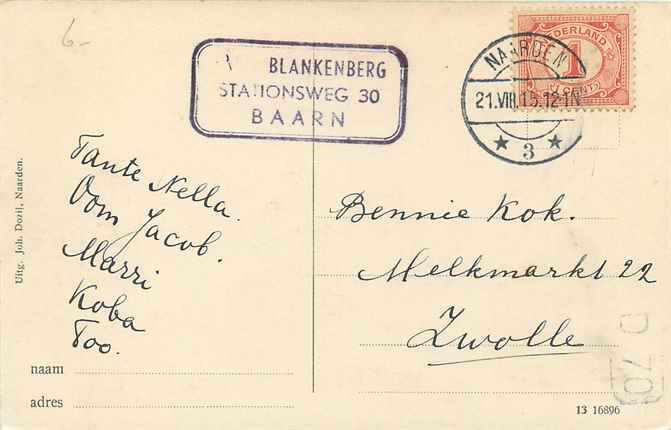 6-
BLANKENBERG
STATIONSWEG 30
BAARN
NEDERLAND
1
CENT
NAARDEN
21.VIII.15.12-1N
★ 3 ★
Tante Nella.
Oom Jacob.
Marri
Koba
Too.
naam
adres
Uitg. Joh. Dozij, Naarden.
Bennie Kok.
Melkmarkt 22
Zwolle
D 70
13 16896